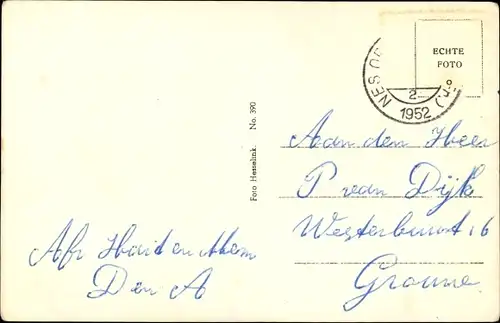 ECHTE
FOTO
NES
2
1952
Foto Hesselink. No. 390
Aan den Heer
P van Dijk
Westerbuurt 6
Grouw
Afz
Den A